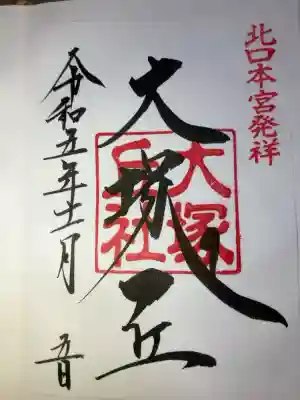 北口本宮発祥
大塚丘
大塚
丘社
令和五年十一月
五日